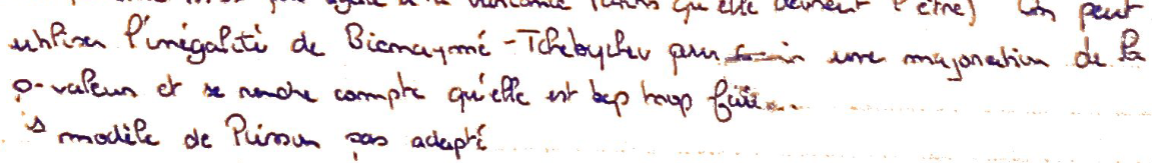 pas égale à la variance (alors qu'elle devraient l'être) on peut
utiliser l'inégalité de Bienaymé-Tchebychev pour une majoration de la
p-valeur et se rendre compte qu'elle est bcp trop
modèle de Poisson pas adapté